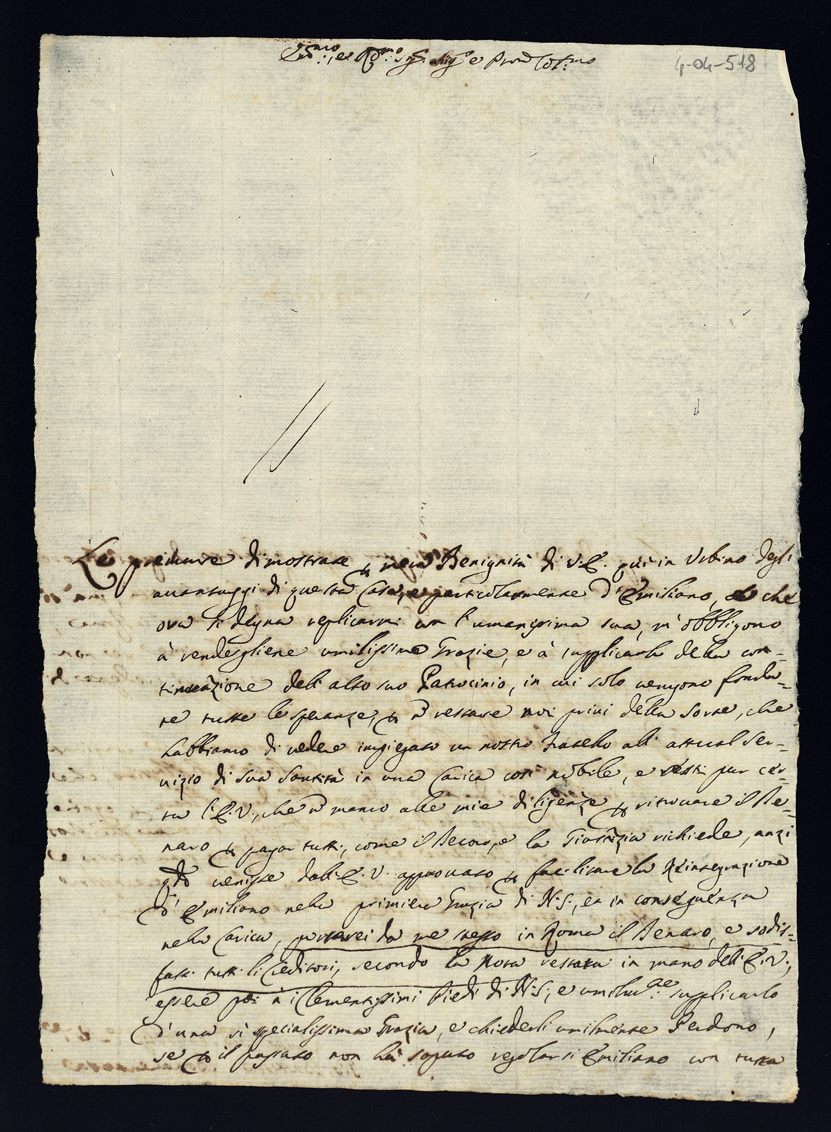 Em.mo, e R.mo Sig.r Sig.r e Pron Col.mo
4-04-518
Le premure dimostrate p mera Benignità di V.E. quì in Urbino degli
avantaggi di questa Casa, e particolarmente d'Emiliano, che
ora si degna replicarmi con l'umanissima sua, m'obbligono
à rendergliene umilissime Grazie, e à supplicarla della con-
tinuazione dell'alto suo Patrocinio, in cui solo vengono fonda-
te tutte le speranze, p ñ restare noi privi della Sorte, che
habbiamo di vedere impiegato un nostro Fratello all'attual ser-
vizio di Sua Santità in una Carica così nobile, e resti pur cer-
ta l'E.V., che ñ manco alle mie diligenze p ritrovare il De-
naro p pagar tutti, come il Decoro, e la Giustizia richiede, anzi
qdo venisse dall'E.V. approvato p facilitare la Reintegrazione
d'Emiliano nella primiera Grazia di N.S., et in conseguenza
nella Carica, porterei da me stesso in Roma il Denaro, e sodis-
fatti tutti li Creditori, secondo la Nota restata in mano dell'E.V.,
essere poi à i Clementissimi Piedi di N.S., e umilm.e supplicarlo
d'una sì specialissima Grazia, e chiederli umilmente Perdono,
se p il passato non hà saputo regolarsi Emiliano con tutta